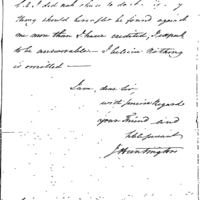 I did not chuse to do it. if y
thing should hereafter be found against
me more than I have credited, I expect
to be answerable. I believe Nothing
is omitted —
I am, dear Sir,
with sincere Regards
your Friend and
hble Servant
J Huntington